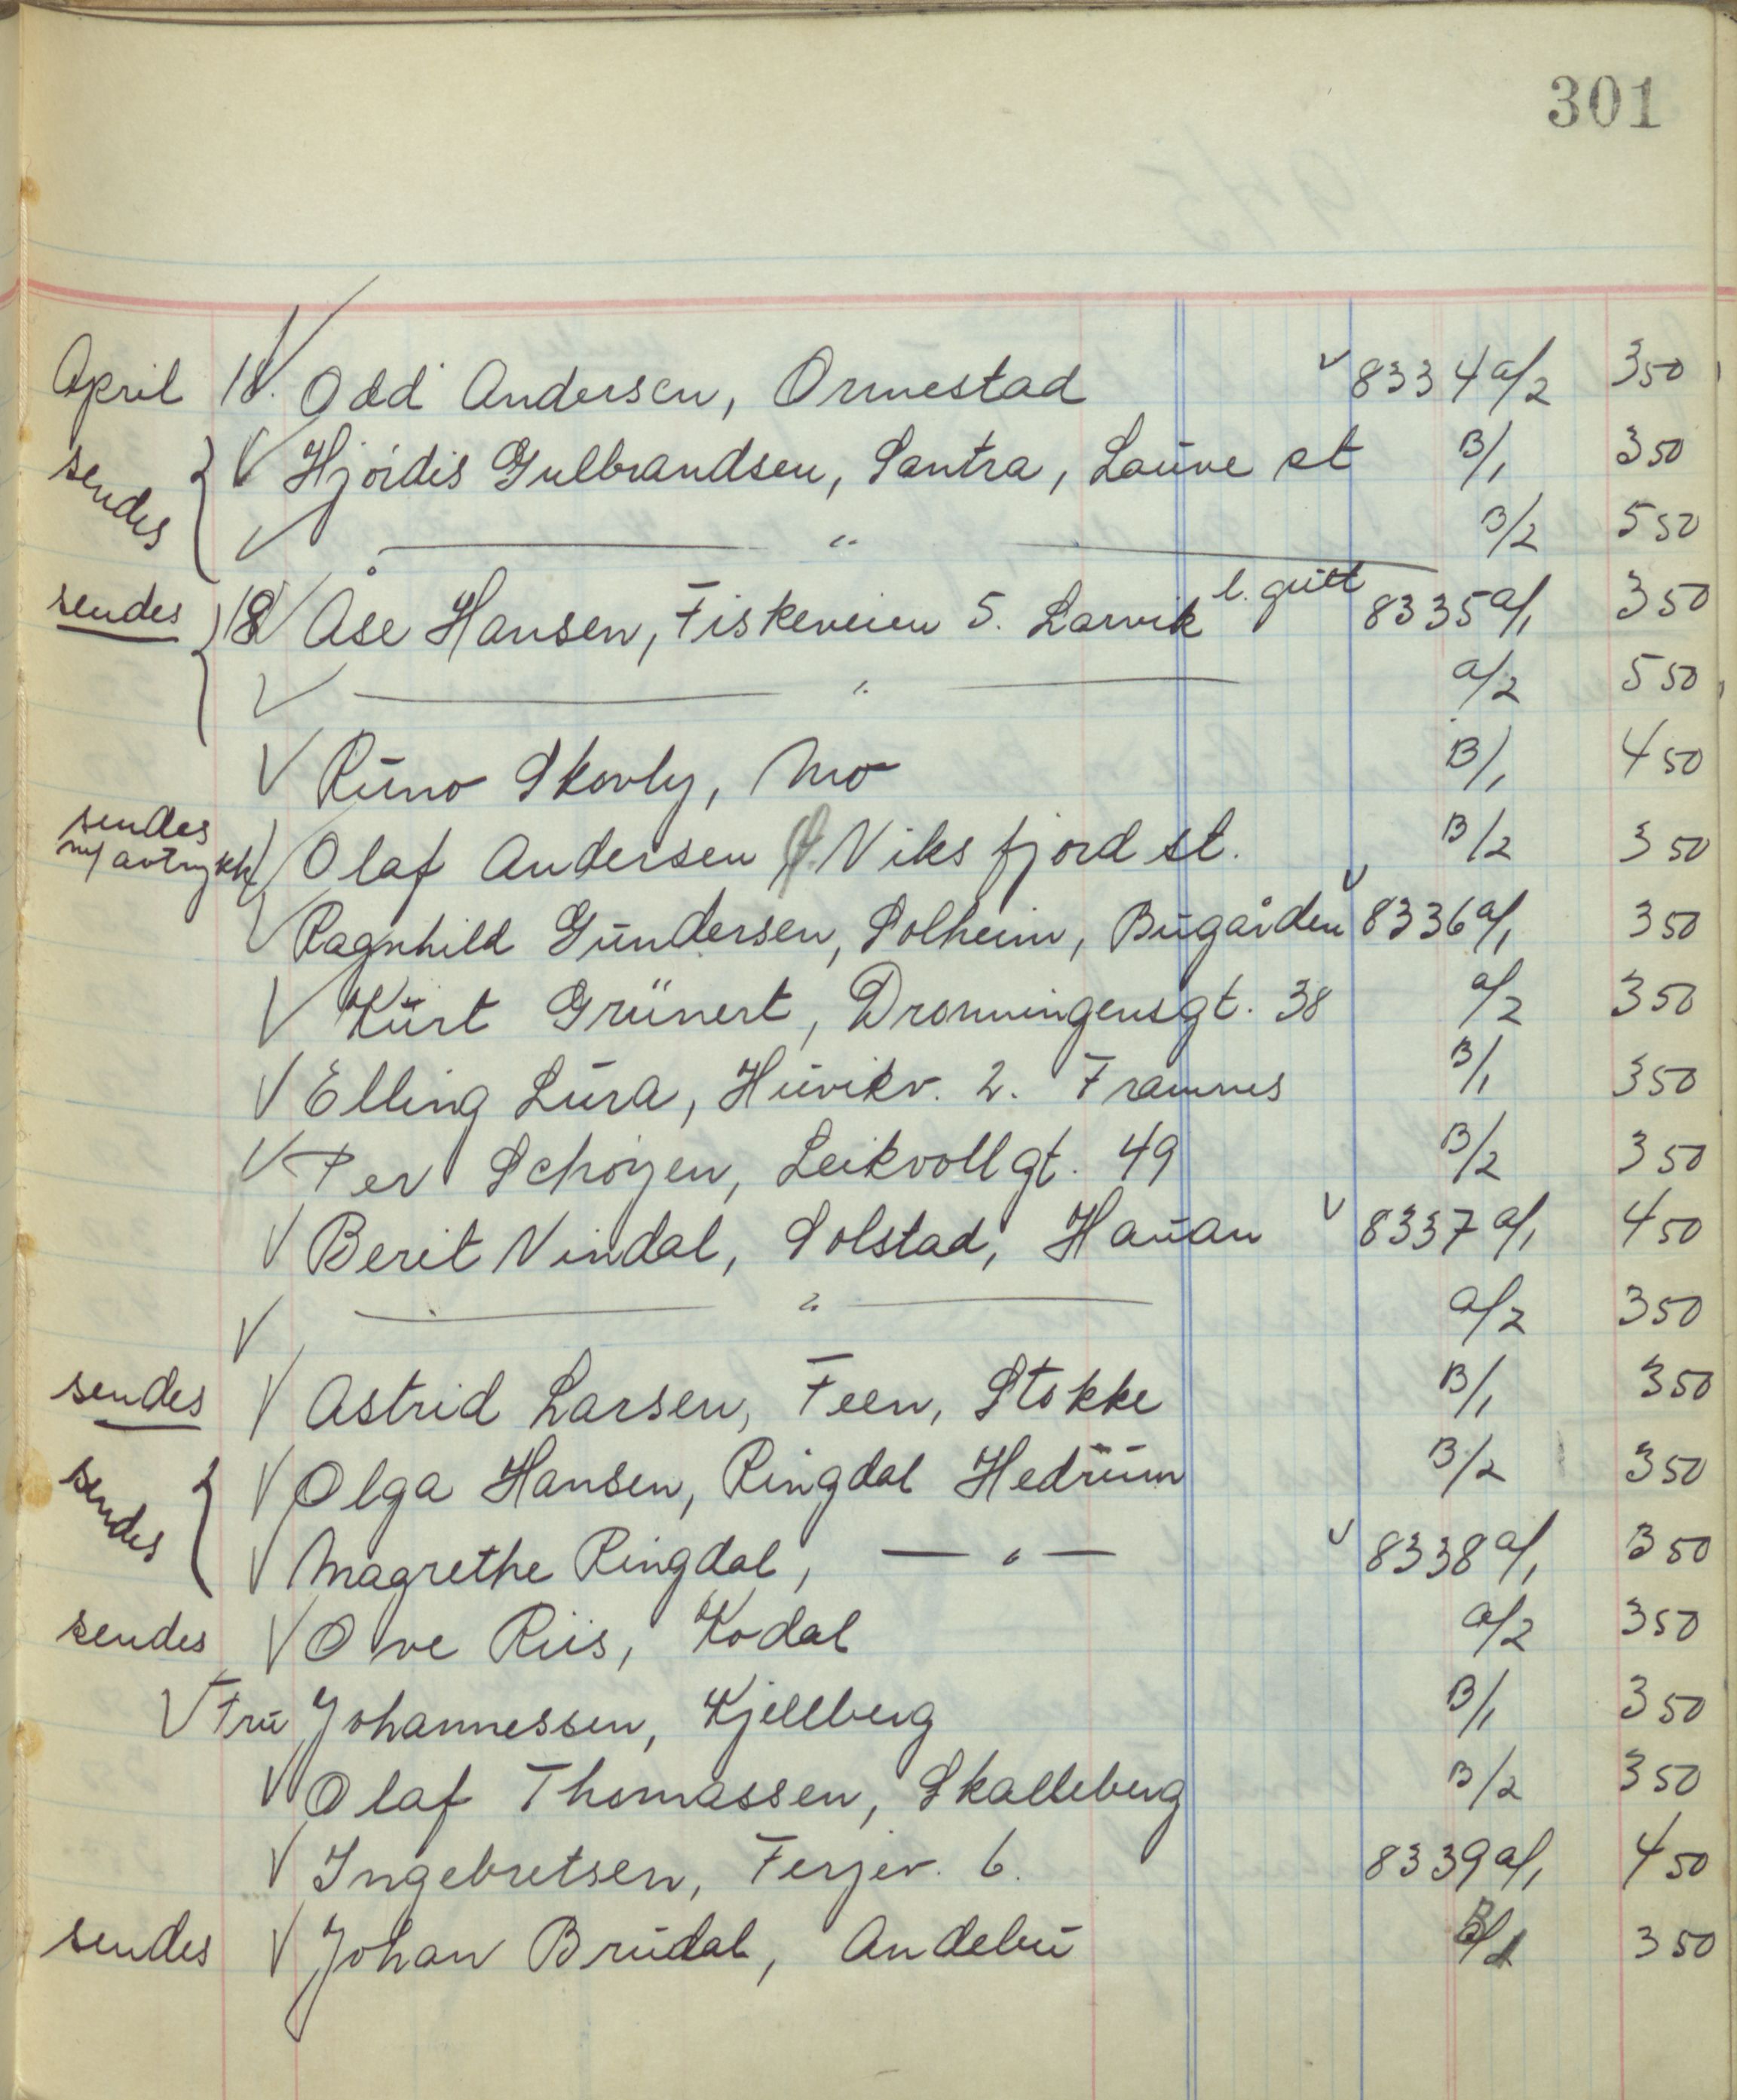 301
April 18. Odd Andersen, Ormestad √ 8334 a/2 350
sendes { √ Hjördis Gulbrandsen, Santra, Lauve st B/1 350
√ —— " —— B/2 550
sendes } 18 √ Åse Hansen, Fiskeveien 5. Larvik l. gutt 8335 a/1 350
√ —— " —— a/2 550
√ Runo Skovly, Mo B/1 450
sendes m/ avtrykk √ Olaf Andersen Viksfjord st. B/2 350
√ Ragnhild Gundersen, Solheim, Bugården √ 8336 a/1 350
√ Kurt Grünert, Dronningensgt. 38 a/2 350
√ Elling Lura, Huvikv. 2. Framnes B/1 350
√ Per Schöyen, Leikvollgt. 49 B/2 350
√ Berit Vindal, Solstad, Hauan √ 8337 a/1 450
√ —— " —— a/2 350
sendes √ Astrid Larsen, Feen, Stokke B/1 350
sendes { √ Olga Hansen, Ringdal Hedrum B/2 350
√ Magrethe Ringdal, — " — √ 8338 a/1 350
sendes √ Ove Riis, Kodal a/2 350
√ Fru Johannessen, Kjellberg B/1 350
√ Olaf Thomassen, Skalleberg B/2 350
√ Ingebretsen, Ferjev. 6. 8339 a/1 450
sendes √ Johan Brudal, Andebu B/1 350